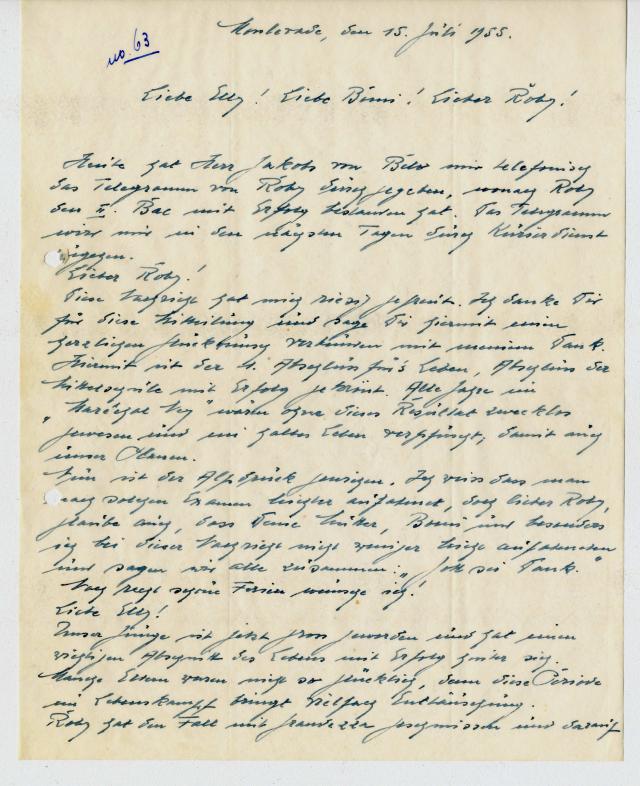 no. 63
Monterade, den 15. Juli 1955.
Liebe Elly! Liebe Bomi! Lieber Roby!
Heute hat Herr Jakobs von mir telefonisch
das Telegramm von Roby durchgegeben, wonach Roby
den II. Bac mit Erfolg bestanden hat. Das Telegramm
wird mir in den nächsten Tagen durch Kurierdienst
zugegen.
Lieber Roby!
Diese Nachricht hat mich riesig gefreut. Ich danke Dir
für diese Mitteilung und sage Dir hiermit einen
herzlichen Glückwunsch verbunden mit meinem Dank.
Hiermit ist der 1. Abschluss fürs Leben, Abschluss der
Mittelschule mit Erfolg gekrönt. Alle Jahre im
"Maréchal Ney" wären ohne dieses Resultat zwecklos
gewesen und ein halbes Leben verpfuscht, damit auch
unser
Nun ist der Alpdruck gewichen. Ich weiss dass man
nach solchen Examen leichter aufatmet, doch lieber Roby,
glaube auch, dass Deine Mutter, Bomi und besonders
ich bei dieser Nachricht nicht weniger aufatmeten
und sagen wir alle zusammen: "Gott sei Dank."
Noch recht schöne Ferien wünsche ich!
Liebe Elly!
Unser Junge ist jetzt gross geworden und hat einen
wichtigen Abschnitt des Lebens mit Erfolg hinter sich.
Manche Eltern waren nicht so glücklich, denn diese Periode
im Lebenskampf bringt vielfach Enttäuschung.
Roby hat den Fall mit Grandezza geschmissen und darauf